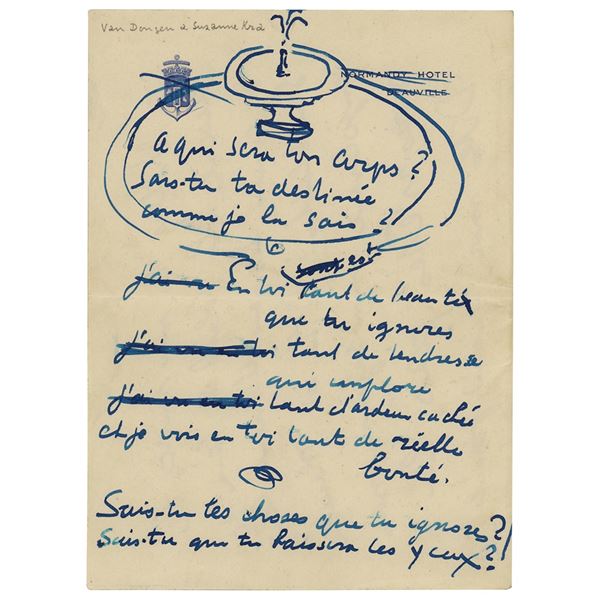 Van Dongen à Suzanne Kra
NORMANDY HOTEL
DEAUVILLE
A qui sera ton corps?
Sais-tu ta destinée
comme je la sais?
sont est
j'ai vu En toi tant de beauté
que tu ignores
j'ai vu en toi tant de tendresse
qui implore
j'ai vu en toi tant d'ardeur caché
et je vois en toi tant de réelle
bonté.
Sais-tu tes choses que tu ignores?!
Sais-tu que tu baissera les yeux?